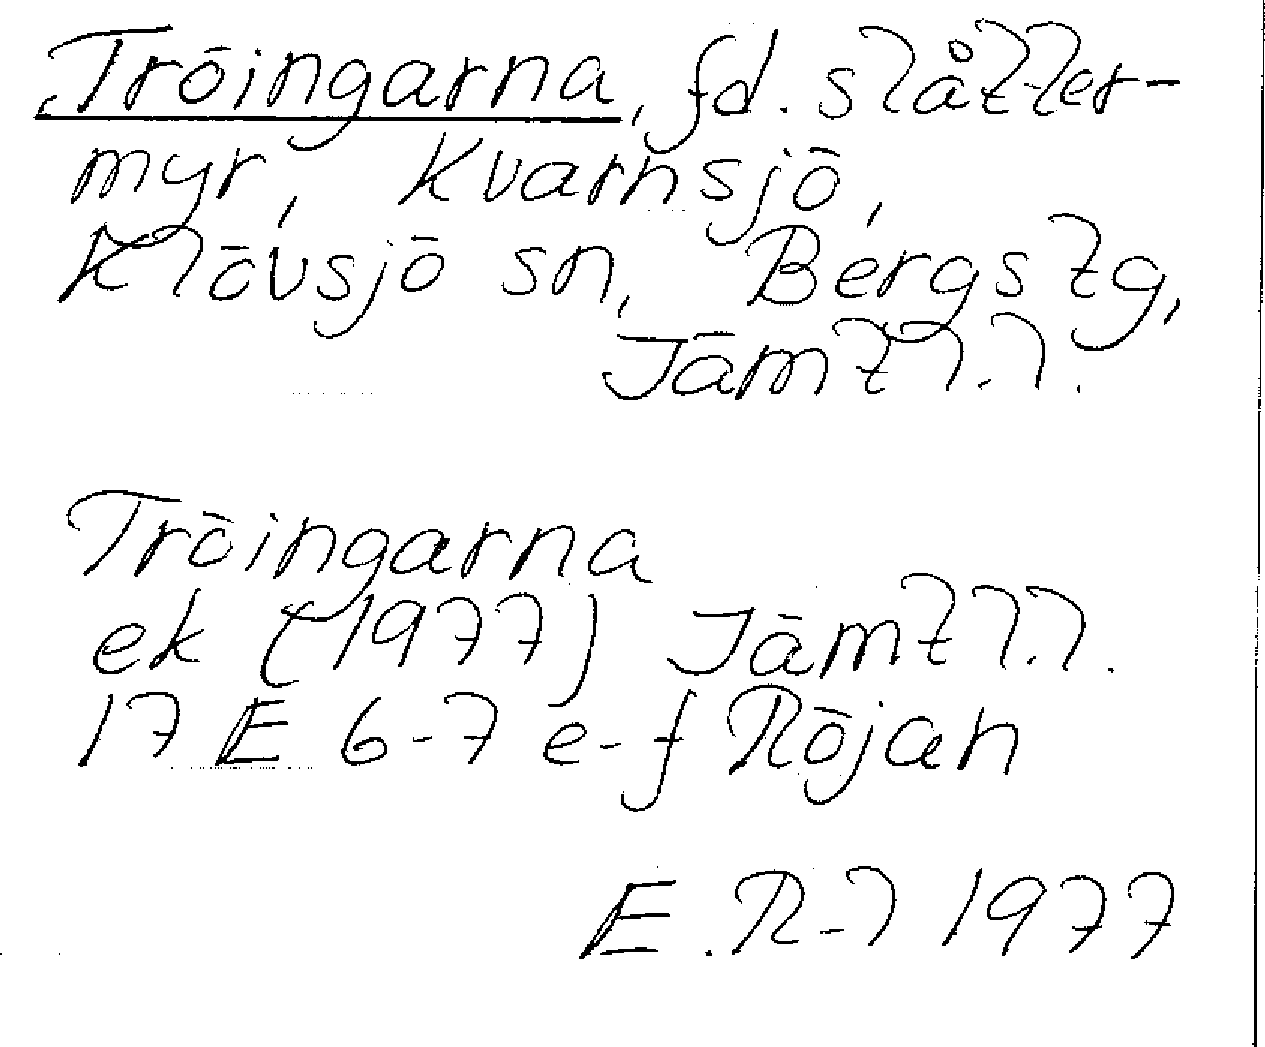 Tröingarna, fd. slåtter-
myr, Kvarnsjö,
Klövsjö sn, Bergs tg,
Jämtl. l.
Tröingarna
ek (1977) Jämtl. l.
17 E 6-7 e-f Röjan
E. R-l 1977